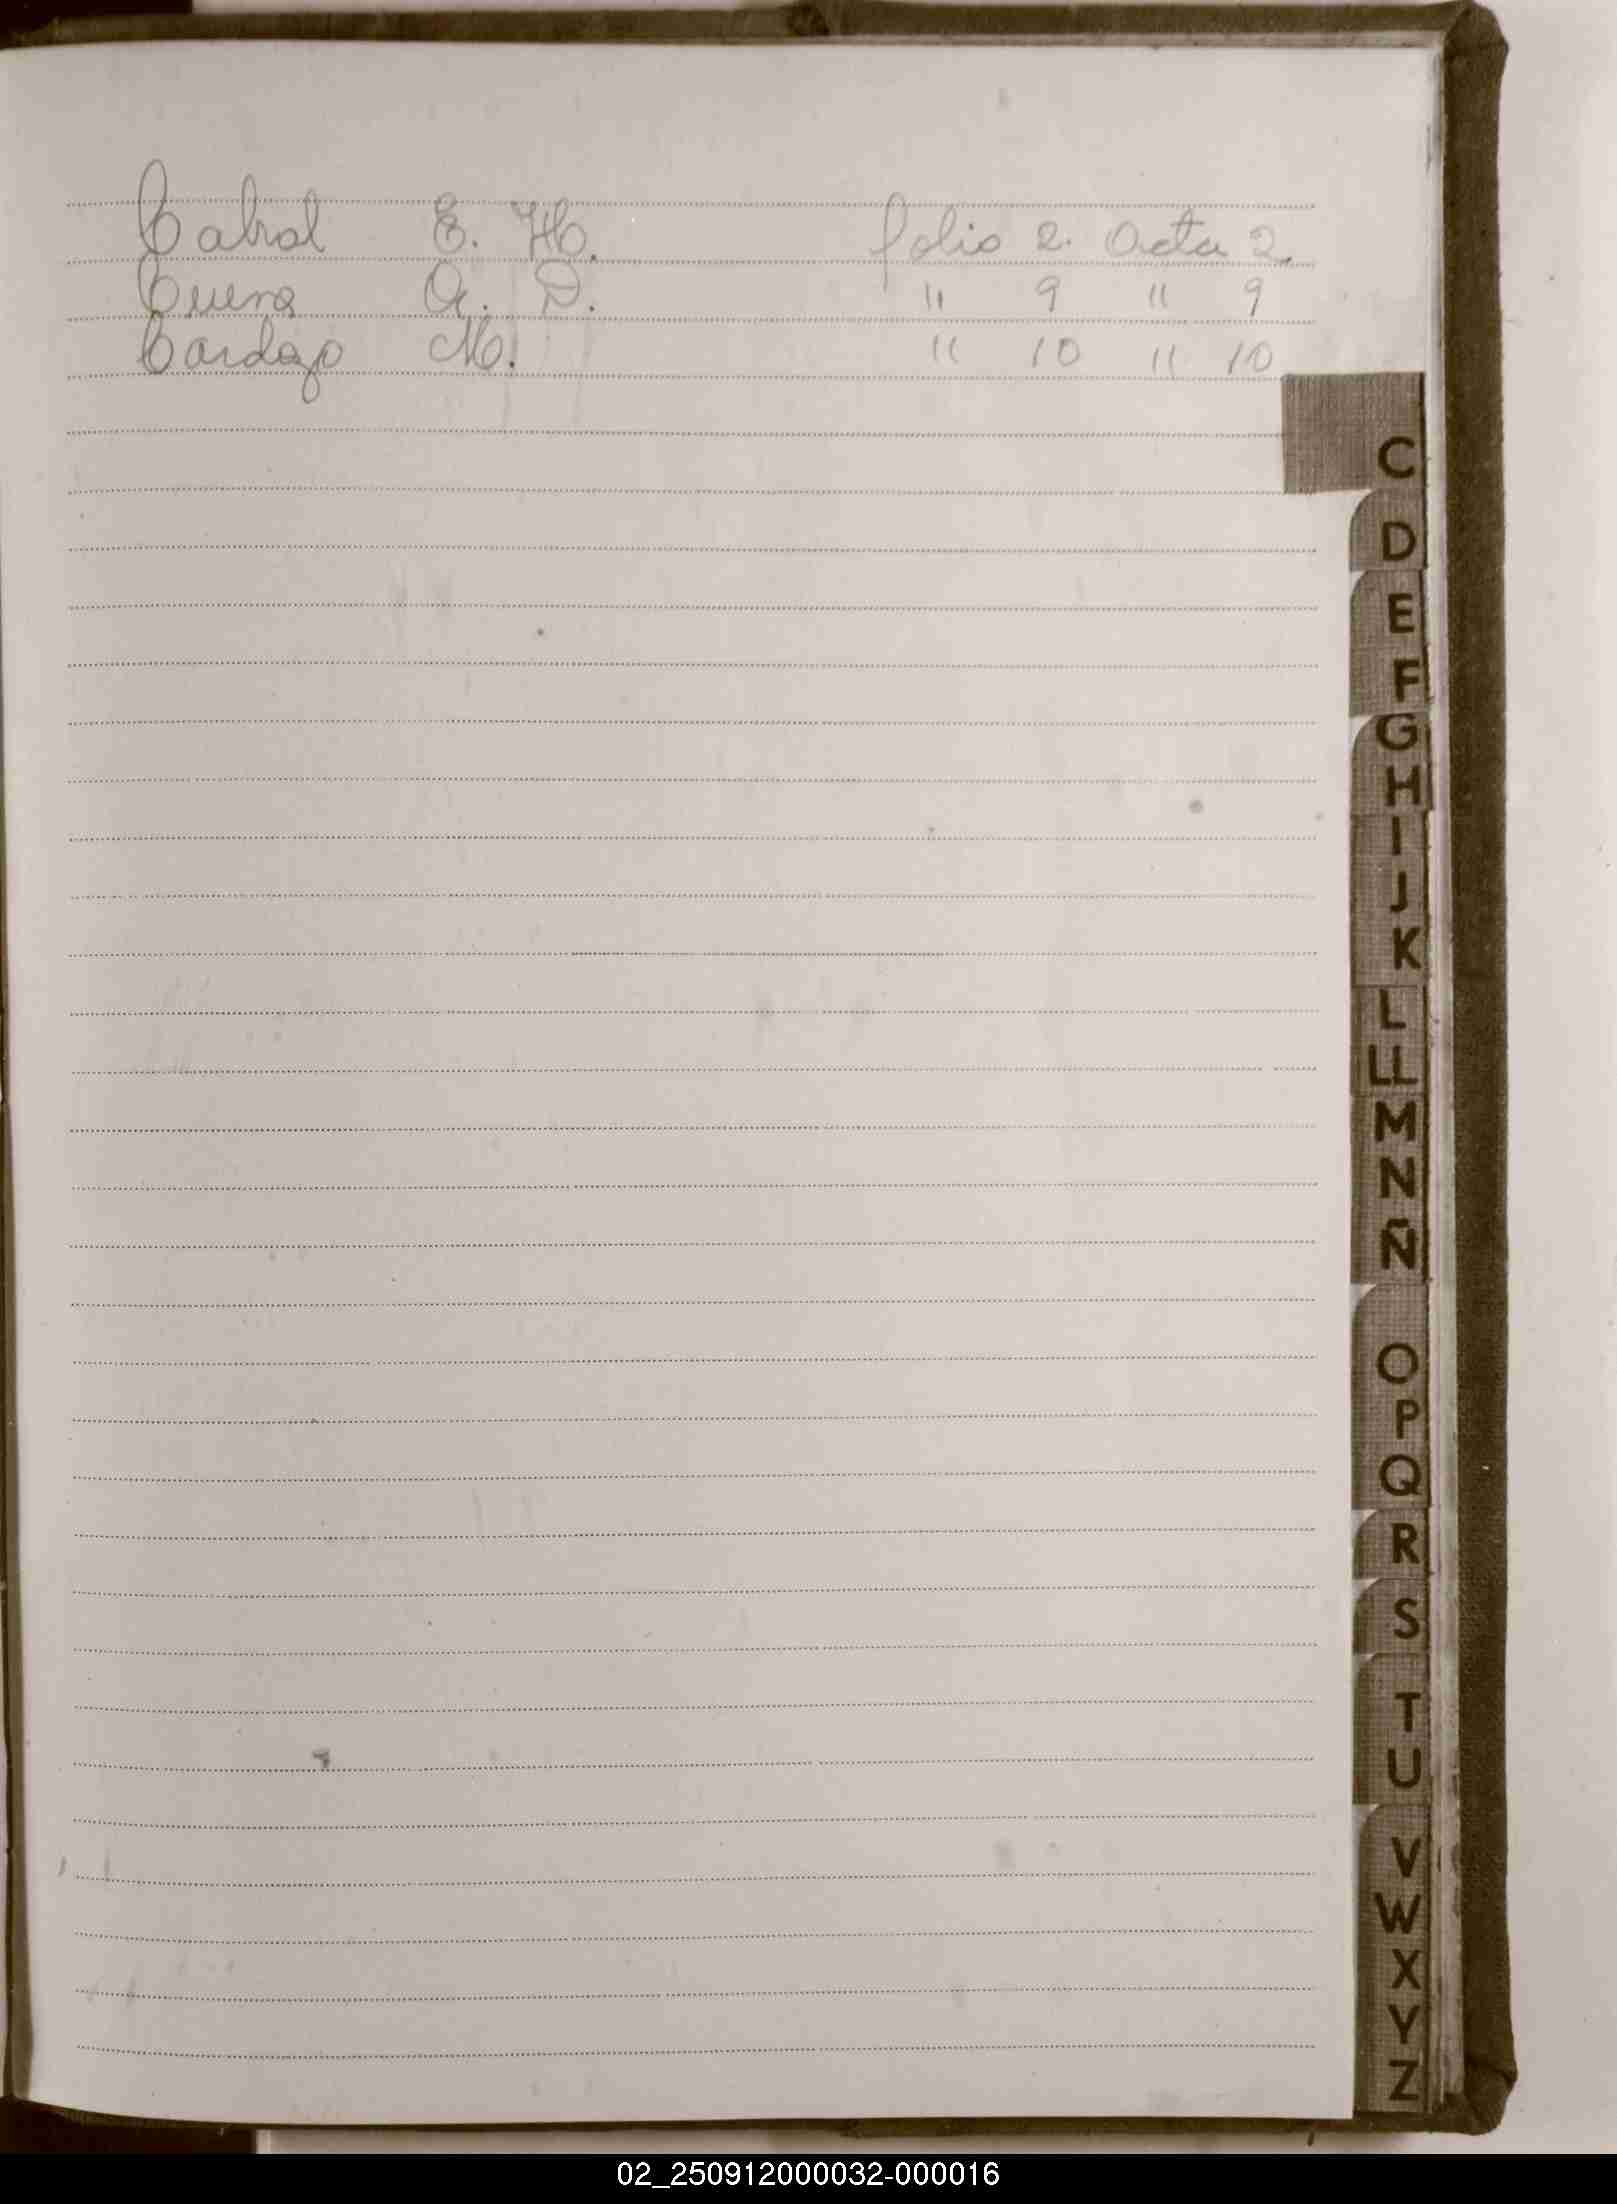 Cabral E. H. folio 2. Acta 2.
A. D. " 9 " 9
Cardozo M. " 10 " 10
C
D
E
F
G
H
I
J
K
L
LL
M
N
Ñ
O
P
Q
R
S
T
U
V
W
X
Y
Z
02_250912000032-000016